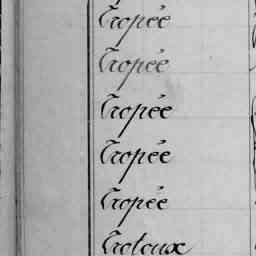 Tropée
Tropée
Tropée
Tropée
Tropée
Trotoux